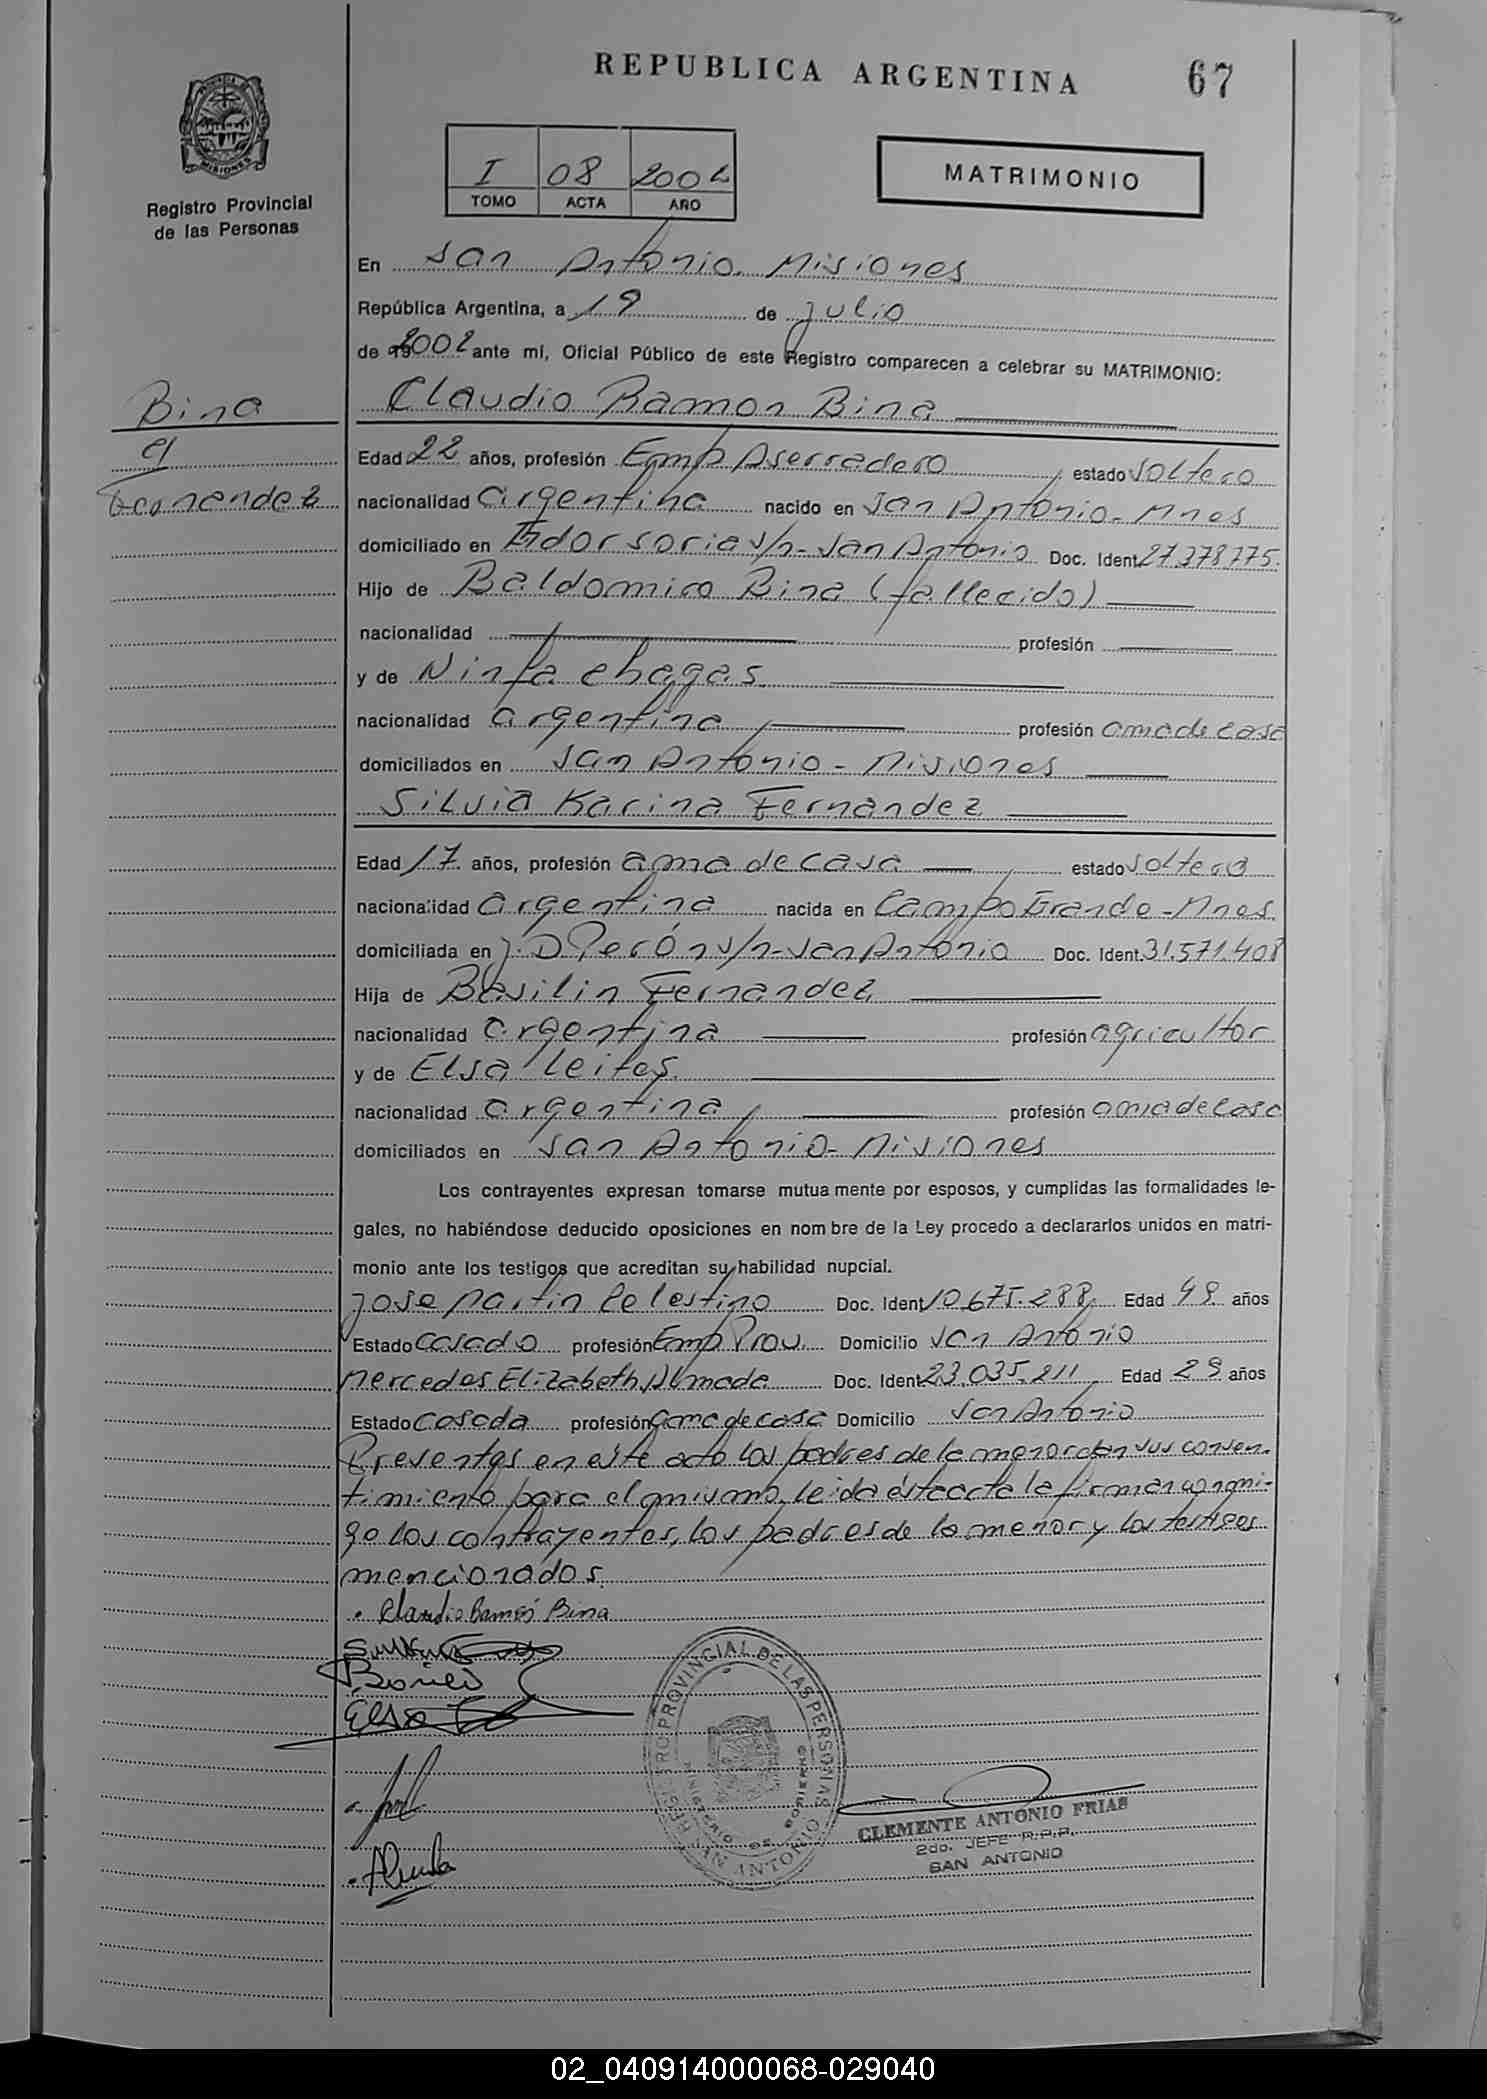 REPUBLICA ARGENTINA
67
MISIONES
Registro Provincial
de las Personas
I 08 2002
TOMO ACTA AÑO
MATRIMONIO
En San Antonio. Misiones
República Argentina, a 19 de julio
de 2002 ante mí, Oficial Público de este Registro comparecen a celebrar su MATRIMONIO:
Bina
Claudio Ramon Bina
Edad 22 años, profesión Emp Aserradero estado soltero
Fernandez
nacionalidad argentina nacido en San Antonio-Mnes
domiciliado en s/n-San Antonio Doc. Ident. 27.378.775.
Hijo de Baldomiro Bina (fallecido)
nacionalidad profesión
y de Ninfa chagas
nacionalidad argentina profesión ama de casa
domiciliados en San Antonio-Misiones
Silvia Karina Fernandez
Edad 17 años, profesión ama de casa estado soltera
nacionalidad argentina nacida en Campo Grande-Mnes.
domiciliada en J.D Perón s/n-San Antonio Doc. Ident. 31.571.408
Hija de Basilin Fernandez
nacionalidad argentina profesión agricultor
y de Elsa Leites
nacionalidad argentina profesión ama de casa
domiciliados en San Antonio-Misiones
Los contrayentes expresan tomarse mutua mente por esposos, y cumplidas las formalidades le-
gales, no habiéndose deducido oposiciones en nom bre de la Ley procedo a declararlos unidos en matri-
monio ante los testigos que acreditan su habilidad nupcial.
Jose Martin Celestino Doc. Ident. 10.675.288 Edad 49 años
Estado casado profesión Emp Prov. Domicilio San Antonio
Mercedes Elizabeth Almada Doc. Ident. 23.035.211 Edad 29 años
Estado casada profesión ama de casa Domicilio San Antonio
Presentes en este acto los padres de la menor dan sus consen-
timiento para el mismo, leida ésta acta la firman conmi-
go los contrayentes, los padres de la menor y los testigos
mencionados.
Claudio Ramón Bina
Elsa
REGISTRO PROVINCIAL DE LAS PERSONAS
MINISTERIO DE GOBIERNO
SAN ANTONIO
CLEMENTE ANTONIO FRIAS
2do. JEFE R.P.P.
SAN ANTONIO
02_040914000068-029040